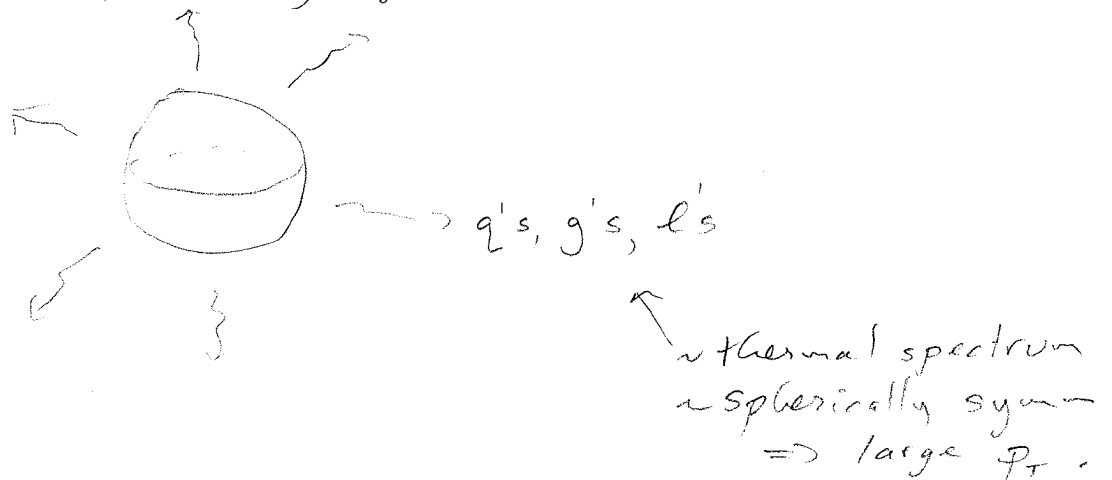 q's, g's, l's
~ thermal spectrum
~ spherically symm
=> large P_T.